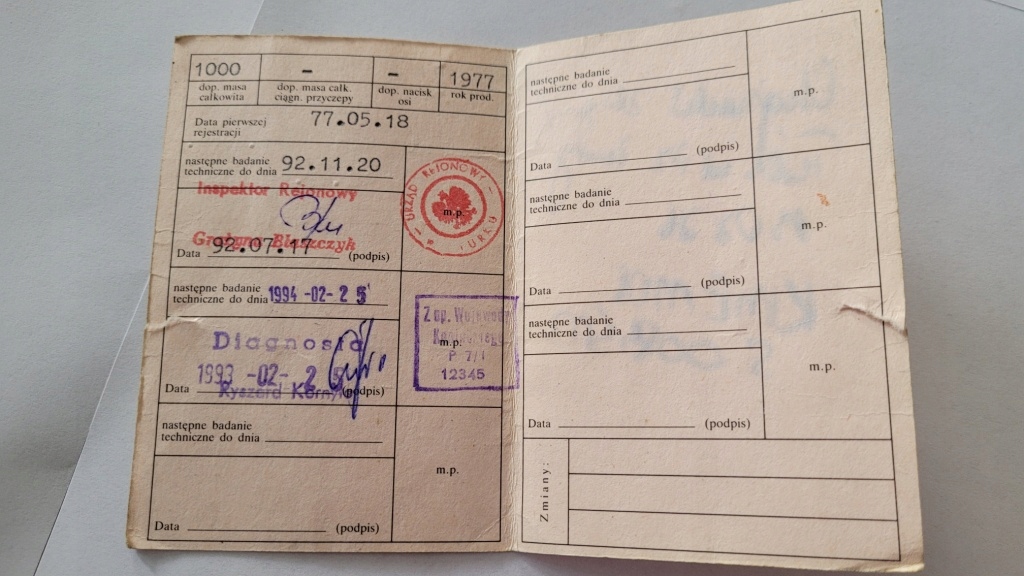 1000 – – 1977
dop. masa całkowita
dop. masa całk. ciągn. przyczepy
dop. nacisk osi
rok prod.
Data pierwszej rejestracji 77.05.18
następne badanie
techniczne do dnia 92.11.20
Inspektor Rejonowy
Grażyna Błaszczyk
Data 92.07.17 (podpis)
URZĄD REJONOWY W TURKU
m.p.
następne badanie
techniczne do dnia 1994 -02- 2 5
Diagnosta
Data 1993 -02- 2 5 (podpis)
Ryszard
Z up. Wojewody
m.p.
P 7/I
12345
następne badanie
techniczne do dnia
m.p.
Data (podpis)
następne badanie
techniczne do dnia
m.p.
Data (podpis)
następne badanie
techniczne do dnia
m.p.
Data (podpis)
następne badanie
techniczne do dnia
m.p.
Data (podpis)
Zmiany: